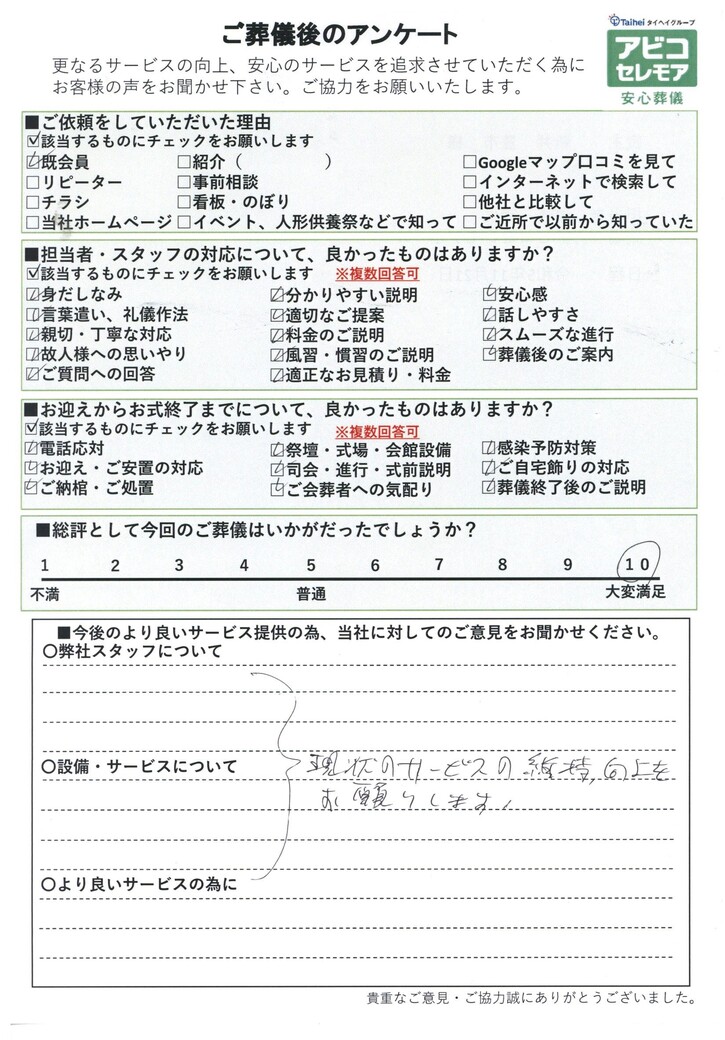 ご葬儀後のアンケート
Taihei タイヘイグループ
アビコ
セレモア
安心葬儀
更なるサービスの向上、安心のサービスを追求させていただく為に
お客様の声をお聞かせ下さい。ご協力をお願いいたします。
■ご依頼をしていただいた理由
☑該当するものにチェックをお願いします
☑既会員 □紹介（　　　　　） □Googleマップ口コミを見て
□リピーター □事前相談 □インターネットで検索して
□チラシ □看板・のぼり □他社と比較して
□当社ホームページ □イベント、人形供養祭などで知って □ご近所で以前から知っていた
■担当者・スタッフの対応について、良かったものはありますか？
☑該当するものにチェックをお願いします ※複数回答可
☑身だしなみ ☑分かりやすい説明 ☑安心感
☑言葉遣い、礼儀作法 ☑適切なご提案 ☑話しやすさ
☑親切・丁寧な対応 ☑料金のご説明 ☑スムーズな進行
☑故人様への思いやり ☑風習・慣習のご説明 ☑葬儀後のご案内
☑ご質問への回答 ☑適正なお見積り・料金
■お迎えからお式終了までについて、良かったものはありますか？
☑該当するものにチェックをお願いします ※複数回答可
☑電話応対 ☑祭壇・式場・会館設備 ☑感染予防対策
☑お迎え・ご安置の対応 ☑司会・進行・式前説明 ☑ご自宅飾りの対応
☑ご納棺・ご処置 ☑ご会葬者への気配り ☑葬儀終了後のご説明
■総評として今回のご葬儀はいかがだったでしょうか？
1 2 3 4 5 6 7 8 9 10
不満 普通 大変満足
■今後のより良いサービス提供の為、当社に対してのご意見をお聞かせください。
〇弊社スタッフについて
〇設備・サービスについて
現状のサービスの維持、向上を
お願いします。
〇より良いサービスの為に
貴重なご意見・ご協力誠にありがとうございました。